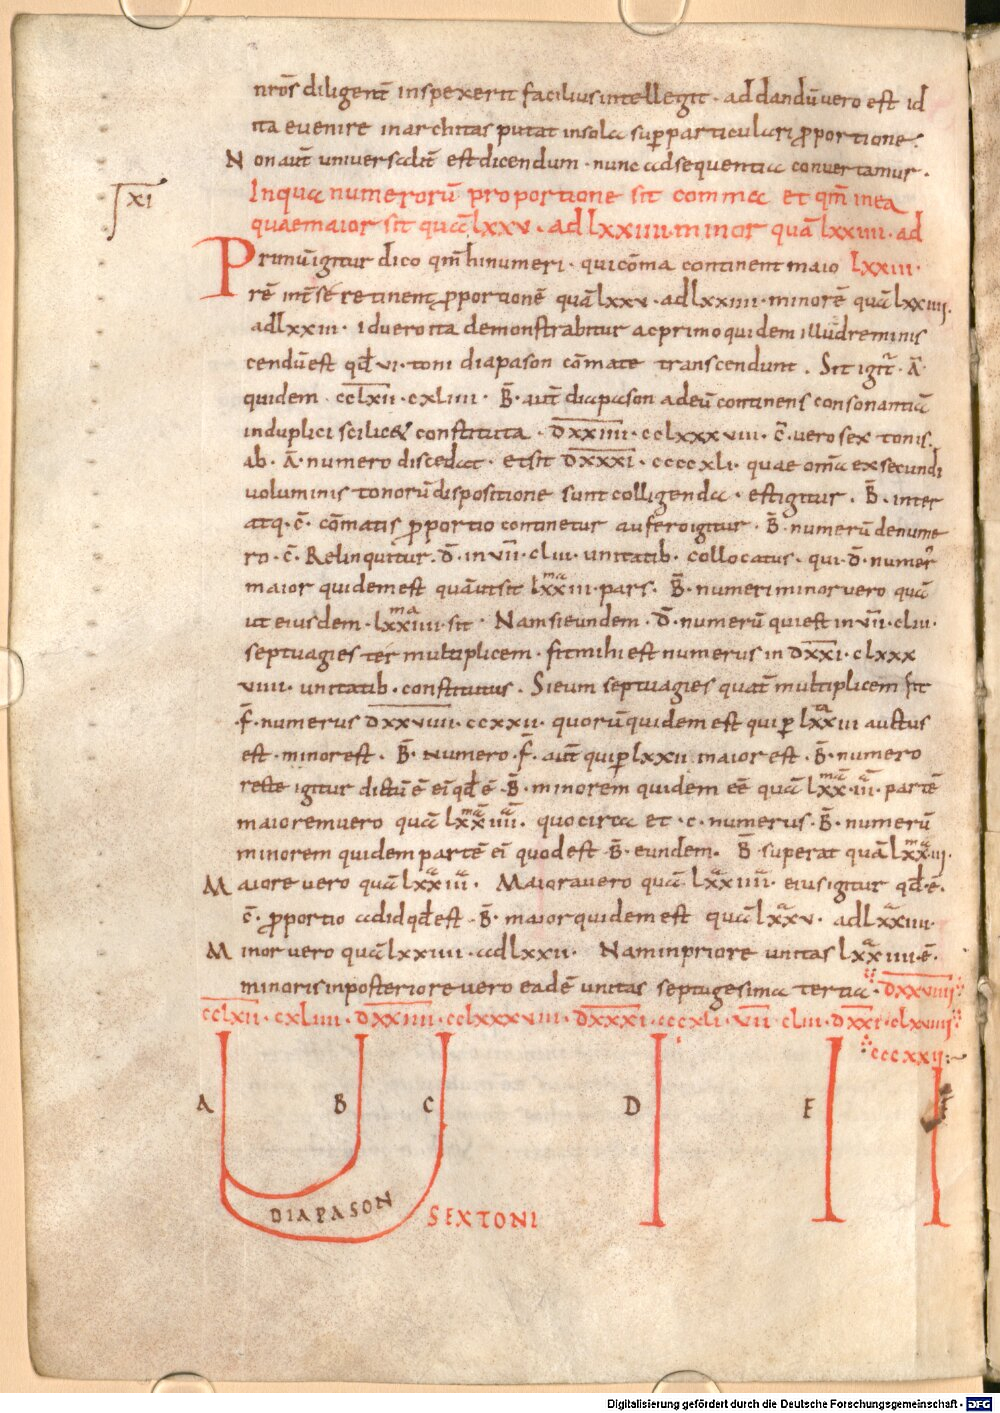 nrōs diligent̄ inspexerit facilius intellegit · addandū vero est id
ita evenire in architas putat in sola suꝑparticulari ꝓportione ·
Non aut̄ universalit̄ est dicendum · nunc ad sequentia convertamur ·
XI
In qua numerorū proportione sit comma et qm̄ in ea
quae maior sit quā lxxv · ad lxxiiii · minor quā lxxiiii · ad
Primū igitur dico qm̄ hi numeri · qui cōma continent maio lxxiii ·
rē int̄ se retinent ꝓportionē quā lxxv · ad lxxiiii · minorē quā lxxiiii ·
ad lxxiii · id vero ita demonstrabitur ac primo quidem illud reminis
cendū est qđ vi · toni diapason cōmate transcendunt . Sit igit̄ · Ā ·
quidem · cclxii · cxliiii · B̄ · aut̄ diapason ad eū continens consonantiā
in duplici scilicet constituta · dxxiiii · cclxxxviii · c̄ · vero sex tonis ·
ab · Ā · numero discedat · et sit dxxxi · ccccxli · quae om̄a ex secundi
voluminis tonorū dispositione sunt colligenda · est igitur · B̄ · inter
atq · c̄ · cōmatis ꝓportio continetur aufero igitur · B̄ · numerū de nume
ro · c̄ · Relinquitur · D̄ · in vii · cliii · unitatib · collocatus · qui · D̄ · numer̄
maior quidem est quā ut sit lxxiii · pars · B̄ · numeri minor vero quā
ut eiusdem · lxxiiii · sit · Nam si eundem · D̄ · numerū qui est in vii · cliii ·
septuagies ter multiplicem · fit mihi est numerus in dxxi · clxxx
viiii · unitatib · constitutus . Si eum septuagies quat̄ multiplicem fit
· f̄ · numerus dxxviiii · ccxxii · quorū quidem est qui ꝑ lxxiii auctus
est · minor est · B̄ · Numero · f̄ · aut̄ qui ꝑ lxxii maior est · B̄ · numero
recte igitur dictū ē ei qđ ē · B̄ · minorem quidem eē quā lxx · iii · partē
maiorem vero quā lxxiiii · quocirca et · c · numerus · B̄ · numerū
minorem quidem partē ei quod est · B̄ · eundem · B̄ · superat quā lxxiii ·
Maiore vero quā lxxiii · Maiora vero quā lxxiiii · eius igitur qđ · ē ·
c̄ · ꝓportio ad id qđ est · B̄ · maior quidem est quā lxxv · ad lxxiiii ·
Minor vero quā lxxiiii · ad lxxii · Nam in priore unitas lxxiiii · ē ·
minoris in posteriore vero eadē unitas septugesima tertia · dxxviiii
cclxii · cxliiii · dxxiiii · cclxxxviii · dxxxi · cccxli · vii · cliii · dxxi · clxviiii
cccxxii
A B C D E
DIAPASON SEXTONI
Digitalisierung gefördert durch die Deutsche Forschungsgemeinschaft - DFG